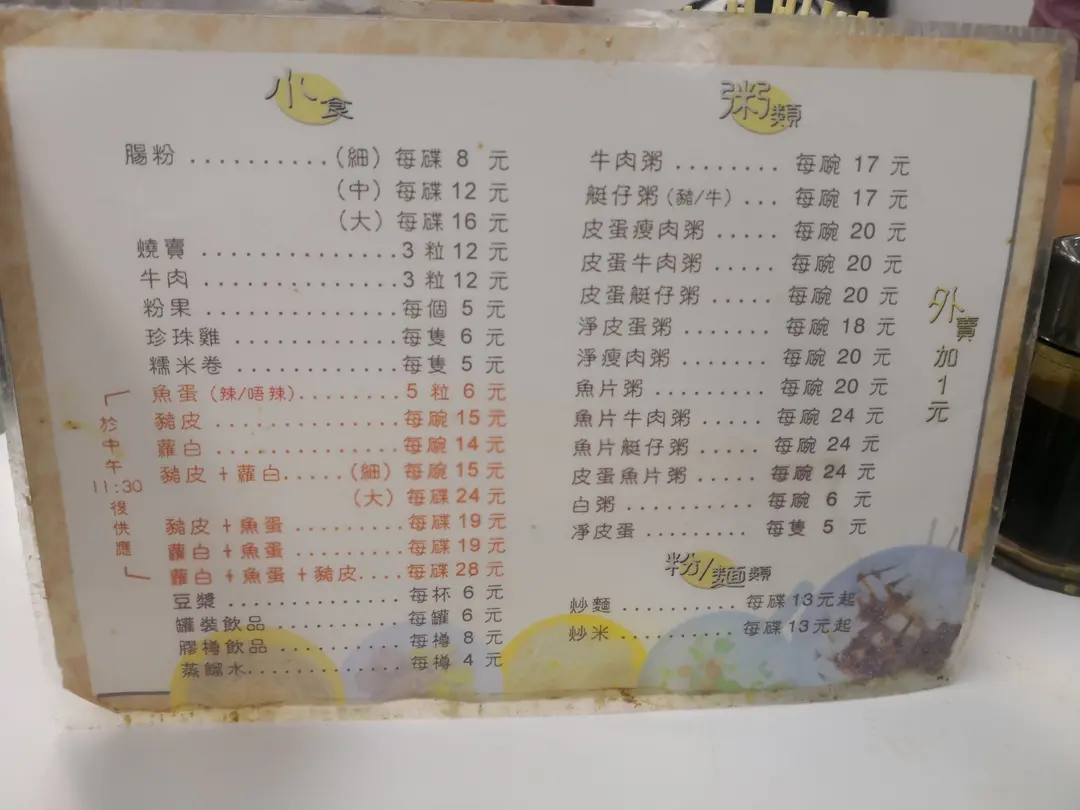 小食
腸粉 ...........(細) 每碟 8 元
(中) 每碟 12 元
(大) 每碟 16 元
燒賣 ................3 粒 12 元
牛肉 ................3 粒 12 元
粉果 ................每個 5 元
珍珠雞 .............每隻 6 元
糯米卷 .............每隻 5 元
於中午11:30後供應
魚蛋 (辣/唔辣).........5 粒 6 元
豬皮 ...............每碗 15 元
蘿白 ...............每碗 14 元
豬皮+蘿白......(細) 每碗 15 元
(大) 每碟 24 元
豬皮+魚蛋 .........每碟 19 元
蘿白+魚蛋 .........每碟 19 元
蘿白+魚蛋+豬皮....每碟 28 元
豆漿 ...............每杯 6 元
罐裝飲品 ...........每罐 6 元
膠樽飲品 ...........每樽 8 元
蒸餾水..............每樽 4 元
粥類
牛肉粥 ........每碗 17 元
艇仔粥(豬/牛) ...每碗 17 元
皮蛋瘦肉粥 .....每碗 20 元
皮蛋牛肉粥 ......每碗 20 元
皮蛋艇仔粥 ......每碗 20 元
淨皮蛋粥 .......每碗 18 元
淨瘦肉粥 ........每碗 20 元
魚片粥 ..........每碗 20 元
魚片牛肉粥 ......每碗 24 元
魚片艇仔粥 ......每碗 24 元
皮蛋魚片粥 .......每碗 24 元
白粥 ...........每碗 6 元
凈皮蛋 .........每隻 5 元
粉/麵類
炒麵 ...........每碟 13元起
炒米 ...........每碟 13元起
外賣加1元